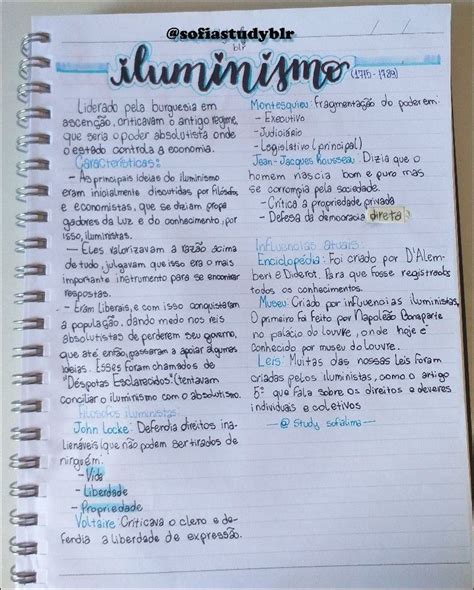 @sofiastudyblr
blr
iluminismo (1715-1789)
Liderado pela burguesia em
ascenção, criticavam o antigo regime,
que seria o poder absolutista onde
o estado controla a economia.
Características:
- As principais ideias do iluminismo
eram inicialmente discutidas por filósofos
e economistas, que se diziam propa
gadores da luz e do conhecimento, por
isso, iluministas.
- Eles valorizavam a razão acima
de tudo, julgavam que isso era o mais
importante instrumento para se encontrar
respostas.
- Eram Liberais, e com isso conquistaram
a população, dando medo nos reis
absolutistas de perderem seu governo,
que até então, passaram a apoiar algumas
ideias. Esses foram chamados de
"Déspotas Esclarecidos" (tentavam
conciliar o iluminismo com o absolutismo.
Filósofos iluministas:
John Locke: Defendia direitos ina-
lienáveis (que não podem ser tirados de
ninguém:
- Vida
- Liberdade
- Propriedade
Voltaire: Criticava o clero e de-
fendia a liberdade de expressão.
Montesquieu: Fragmentação do poder em:
- Executivo
- Judiciário
- Legislativo (principal)
Jean-Jacques Rousseau: Dizia que o
homem nascia bom e puro mas
se corrompia pela sociedade.
- Crítica a propriedade privada
- Defesa da democracia direta
Influências atuais:
Enciclopédia: Foi criado por D'Alem-
bert e Diderot. Para que fosse registrados
todos os conhecimentos.
Museu: Criado por influencias iluministas,
O primeiro foi feito por Napoleão Bonaparte
no palácio do louvre, onde hoje é
conhecido por museu do louvre.
Leis: Muitas das nossas leis foram
criadas pelos iluministas, como o artigo
5º que fala sobre os direitos e deveres
individuais e coletivos
@ study sofialima